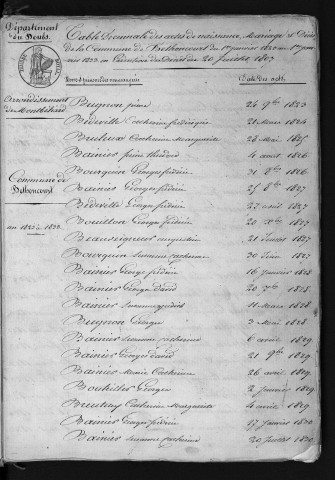 Département
du Doubs.
Table Décennale des actes de naissance, Mariage & Décès
de la Commune de Bethoncourt du 1er janvier 1823 au 1er jan-
vier 1833 en Exécution du Décret du 20 Juillet 1807
Noms et prénoms
Date des actes
Arrondissement
de Montbéliard
Commune de
Bethoncourt
an 1823 à 1832.
Bugnon pierre 26 9bre 1823
Bédeville Catherine frédérique 21 Mars 1824
Beuteux Catherine Marguerite 28 Mai 1825
Bainier pierre théodore 4 aout 1826
Bourquin Georges frédéric 31 1826
Bainier Georges frédéric 25 1827
Bédeville Georges frédéric 27 aout 1827
Bouillon George frédéric 20 1827
Beauseigneur 21 Juillet 1827
Bourquin Suzanne catherine 30 Juin 1827
Bainier George frédéric 16 janvier 1828
Bainier George david 20 1828
Bainier Suzanne 11 Mars 1828
Bugnon George 3 Mai 1828
Bainier Suzanne catherine 6 avril 1829
Bainier Georges david 21 9bre 1829
Bainier Marie Catherine 26 avril 1829
Bouthiller Georges 2 janvier 1829
Beuteux Catherine Marguerite 4 avril 1829
Bainier Georges frédéric 17 Janvier 1830
Bainier Suzanne catherine 20 Juillet 1830